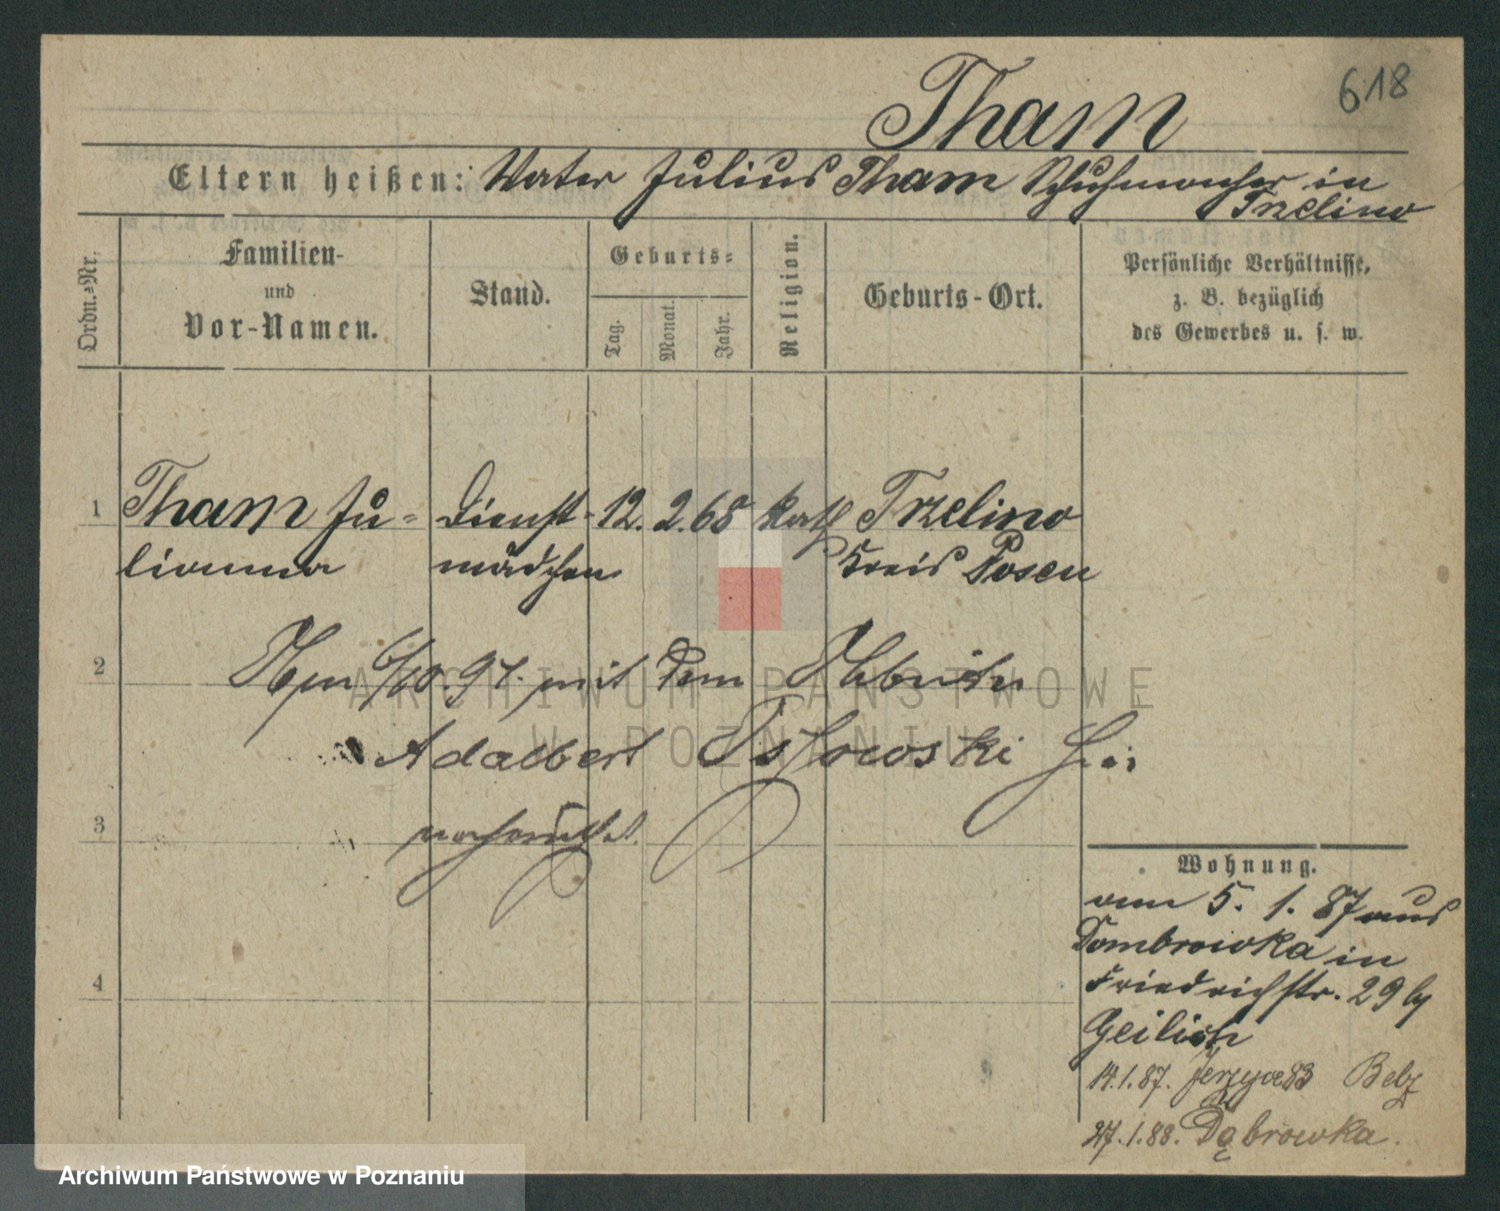 618
Tham
Eltern heißen: Vater Julius Tham Schuhmacher in
Trzelino
Ordn.-Nr.
Familien-
und
Vor-Namen.
Stand.
Geburts-
Tag.
Monat.
Jahr.
Religion.
Geburts-Ort.
Persönliche Verhältnisse,
z. B. bezüglich
des Gewerbes u. s. w.
1 Tham Ju- Dienst- 12. 2. 68 kath Trzelino
lianna mädchen Kreis Posen
2
mit dem
ARCHIWUM PAŃSTWOWE
W POZNANIU
Adalbert
3
Wohnung.
vom 5. 1. 87 aus
Dombrowka in
Friedrichstr. 29 by
4
14.1.87. Jerzyce 83
27.1.88. Dąbrowka.
Archiwum Państwowe w Poznaniu